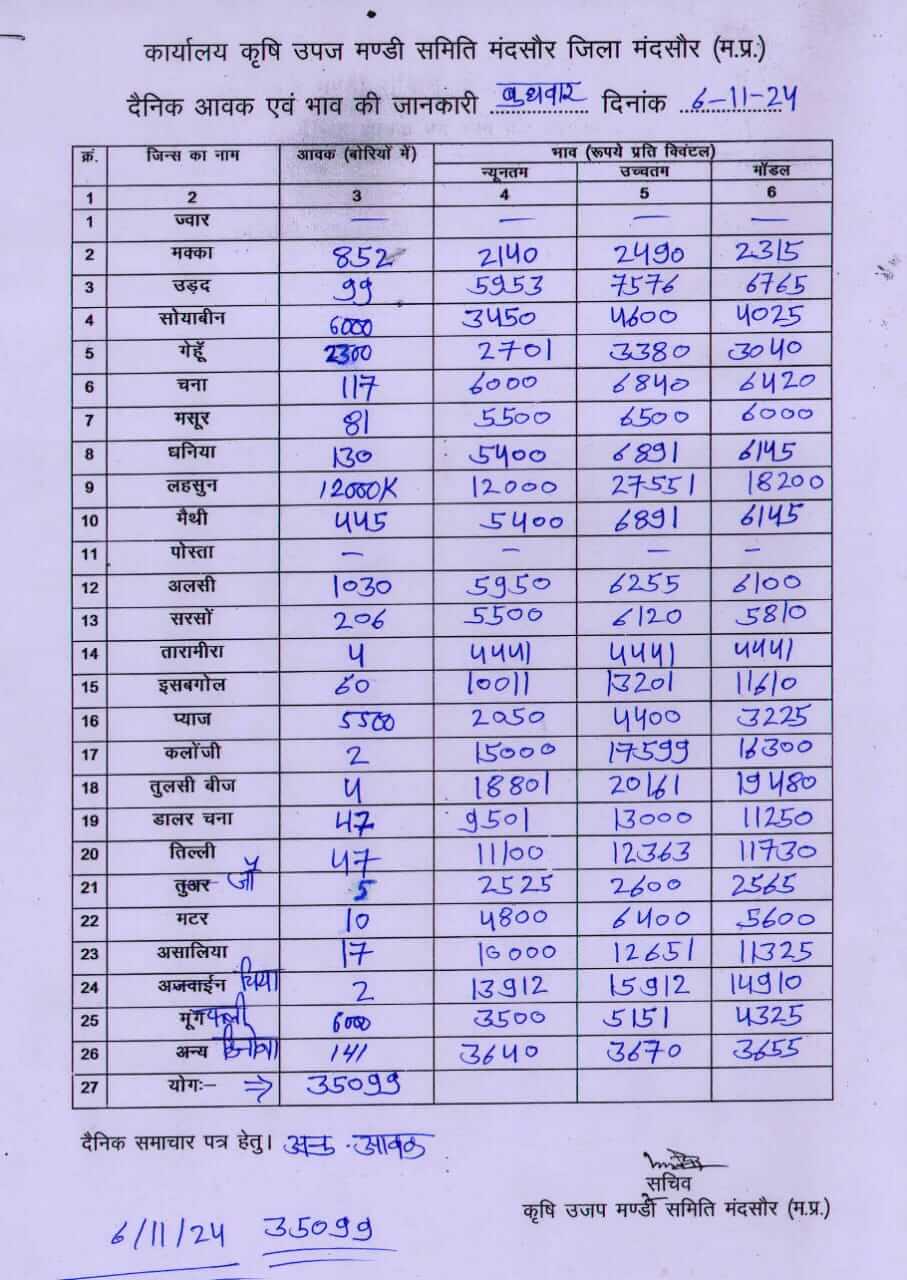 कार्यालय कृषि उपज मण्डी समिति मंदसौर जिला मंदसौर (म.प्र.)
दैनिक आवक एवं भाव की जानकारी बुधवार दिनांक 6-11-24
क्रं. जिन्स का नाम आवक (बोरियों में) भाव (रूपये प्रति क्विंटल)
न्यूनतम उच्चतम मॉडल
1 2 3 4 5 6
1 ज्वार — — — —
2 मक्का 852 2140 2490 2315
3 उड़द 99 5953 7576 6765
4 सोयाबीन 6000 3450 4600 4025
5 गेहूँ 2300 2701 3380 3040
6 चना 117 6000 6840 6420
7 मसूर 81 5500 6500 6000
8 धनिया 130 5400 6891 6145
9 लहसुन 12000K 12000 27551 18200
10 मैथी 445 5400 6891 6145
11 पोस्ता — — — —
12 अलसी 1030 5950 6255 6100
13 सरसों 206 5500 6120 5810
14 तारामीरा 4 4441 4441 4441
15 इसबगोल 60 10011 13201 11610
16 प्याज 5500 2050 4400 3225
17 कलोंजी 2 15000 17599 16300
18 तुलसी बीज 4 18801 20161 19480
19 डालर चना 47 9501 13000 11250
20 तिल्ली 47 11100 12363 11730
21 तुअर जौ 5 2525 2600 2565
22 मटर 10 4800 6400 5600
23 असालिया 17 10000 12651 11325
24 अजवाईन चिया 2 13912 15912 14910
25 मूंगफली 6000 3500 5151 4325
26 अन्य 141 3640 3670 3655
27 योगः- ⇒ 35099
दैनिक समाचार पत्र हेतु। आवक
सचिव
कृषि उजप मण्डी समिति मंदसौर (म.प्र.)
6/11/24 35099